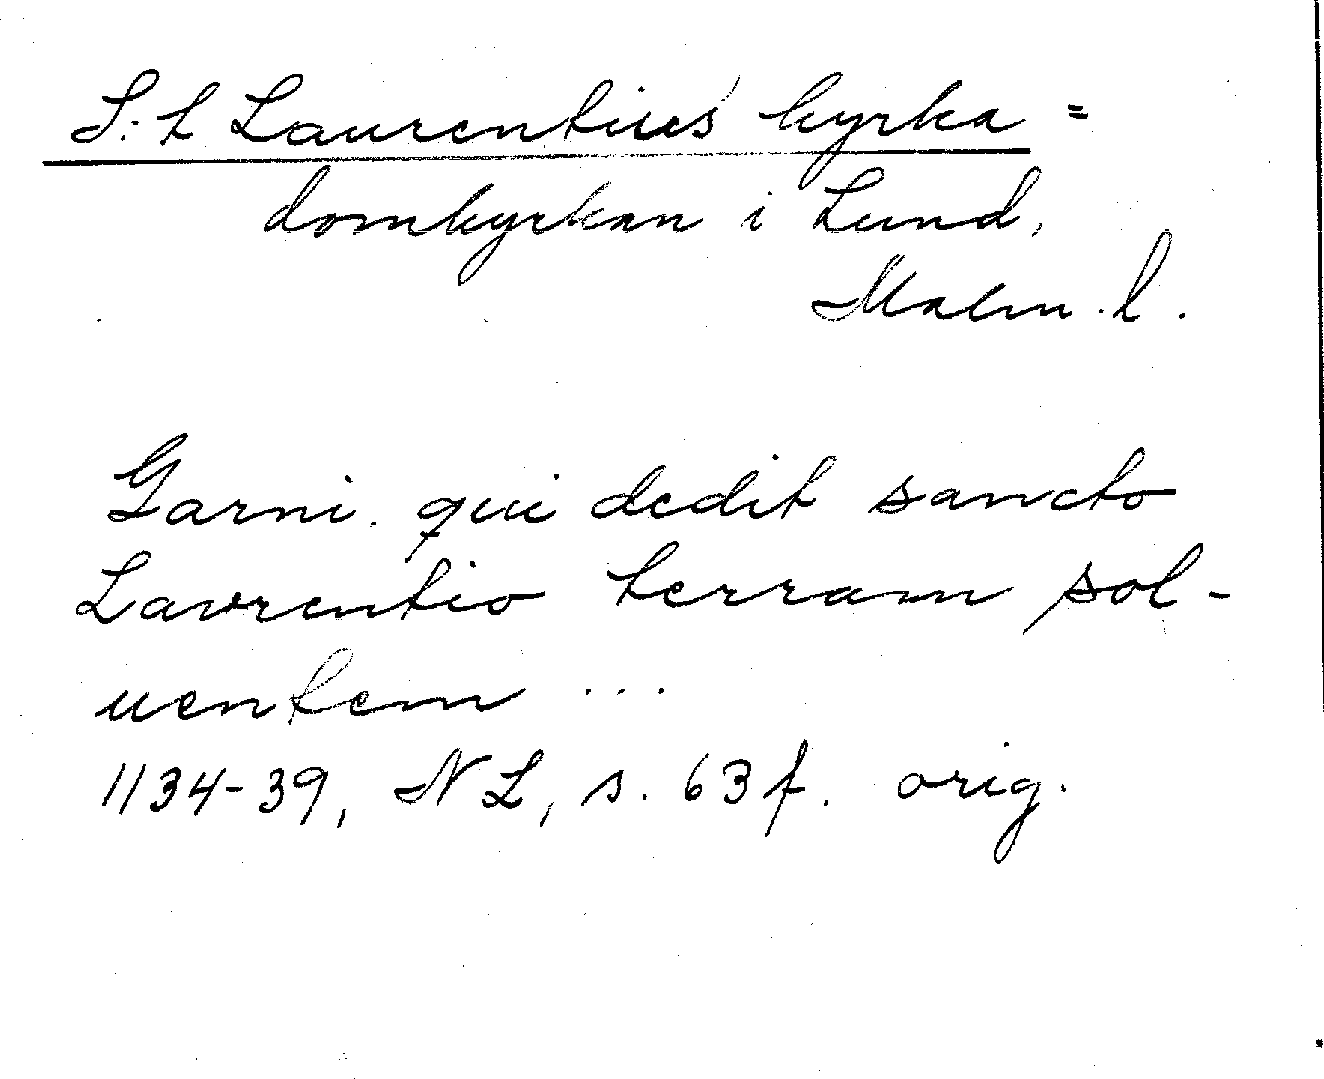 S:t Laurentius' kyrka =
domkyrkan i Lund,
Malm. l.
Garni. qui dedit sancto
Lavrentio terram sol-
uentem ...
1134-39, NL, s. 63 f. orig.